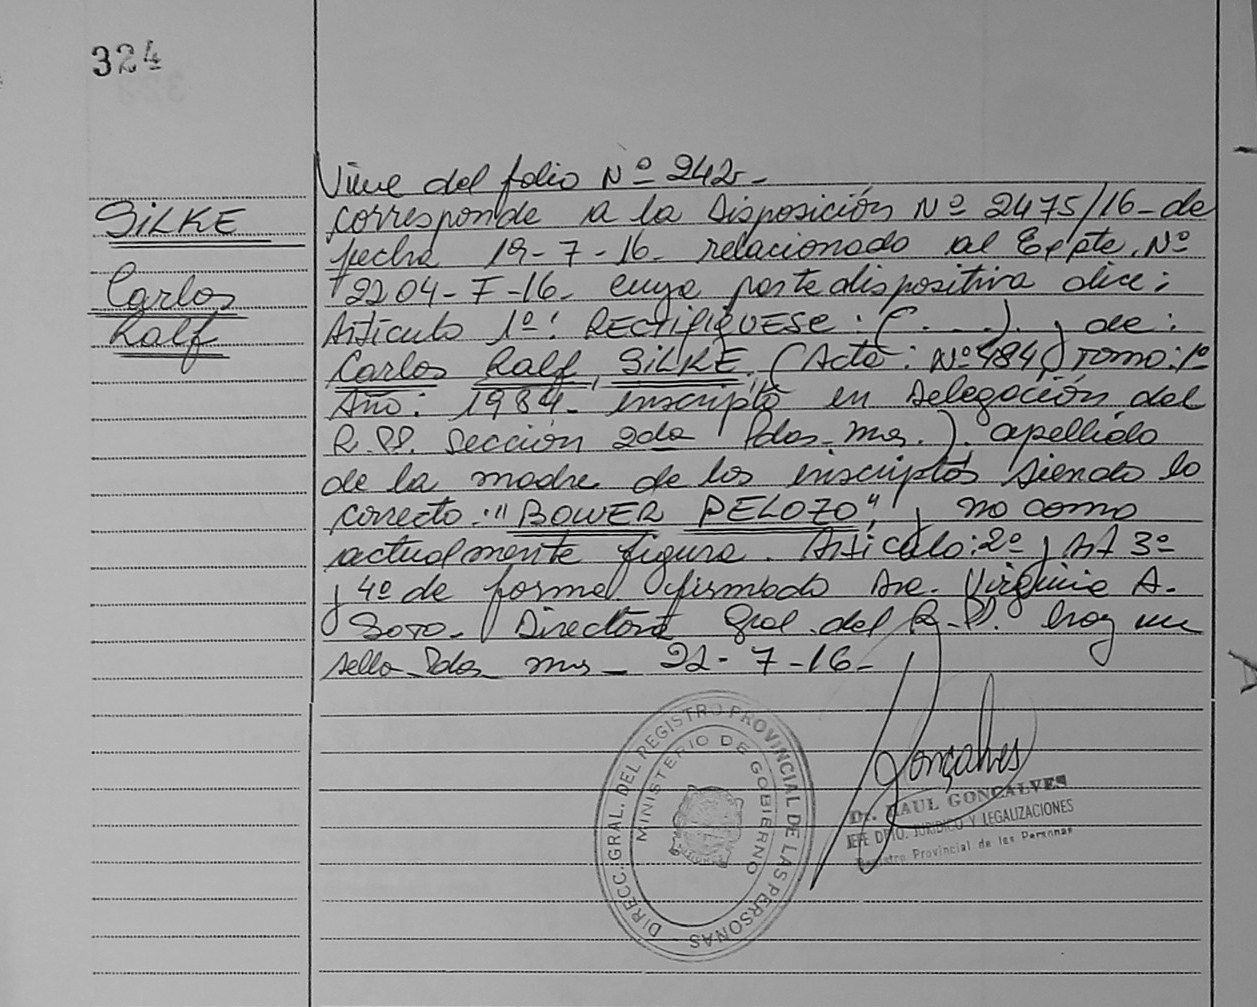 324
Viene del folio Nº 242-
SILKE
Carlos
Ralf
corresponde a la Disposición Nº 2475/16- de
fecha 19-7-16- relacionado al Expte. Nº
2204-F-16- cuya parte dispositiva dice:
Artículo 1º: RECTIFIQUESE: (. ...). y de:
Carlos Ralf, SILKE. (Acta: Nº 484, Tomo: 1º
Año: 1984- inscripto en Delegación del
R.PP. Sección 2da Pdas-Mns.). apellido
de la madre de los inscriptos siendo lo
correcto: "BOWER PELOZO", y no como
actualmente figura. Artículo: 2º, Art 3º
y 4º de forma. firmado Dra. Virginia A.
Soto- Directora Gral. del R.P.P. hay un
sello- Pdas Mns- 22-7-16-
DIRECC. GRAL. DEL REGISTRO PROVINCIAL DE LAS PERSONAS
MINISTERIO DE GOBIERNO
Gonçalves
Dr. RAUL GONÇALVES
JEFE DPTO. JURIDICO Y LEGALIZACIONES
Registro Provincial de las Personas